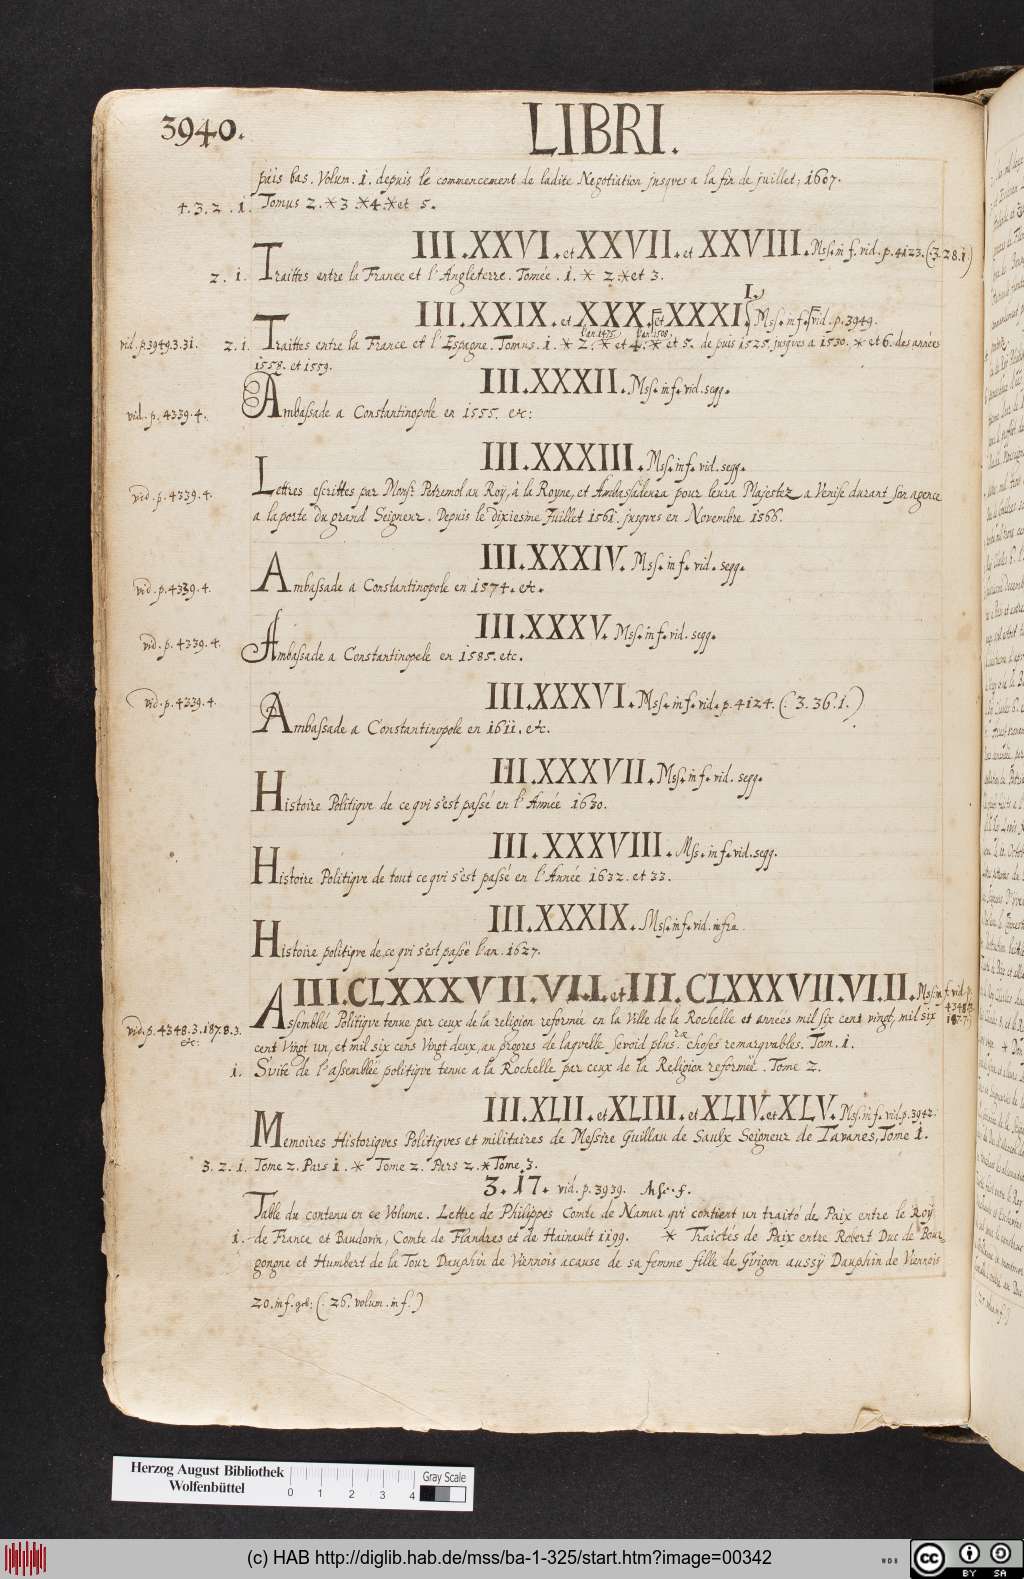 3940.
LIBRI.
païs bas. Volum. i. depuis le commencement de ladite Negotiation jusqves a la fin de juillet, 1607.
4. 3. 2. i. Tomus 2. * 3. * 4. * et 5.
III. XXVI. et XXVII. et XXVIII. Mss. in f. vid. p. 4123. (:3.28.i:)
2. i. Traittes entre la France et l'Angleterre. Tomée. i. * 2. * et 3.
III. XXIX. et XXX. et XXXI. I. Mss. in f. vid. p. 3949.
vid. p. 3949. 3. 31. 2. i. Traittes entre la France et l'Espagne. Tomus. i. * 2. * et 4. * et 5. de puis 1525. jusqves a 1530. * et 6. des années
1558. et 1559.
III. XXXII. Mss. in f. vid. segg.
vid. p. 4339. 4. Ambassade a Constantinopole en 1555. etc:
III. XXXIII. Mss. in f. vid. segg.
vid. p. 4339. 4. Lettres escrittes par Monsr. Petremol au Roy, à la Royne, et Ambassadeurs pour leurs Majestez a Venise durant son agence
a la porte du grand Seigneur. Depuis le dixiesme Juillet 1561. jusques en Novembre 1566.
III. XXXIV. Mss. in f. vid. segg.
vid. p. 4339. 4. Ambassade a Constantinopole en 1574. etc.
III. XXXV. Mss. in f. vid. segg.
vid. p. 4339. 4. Ambassade a Constantinopele en 1585. etc.
III. XXXVI. Mss. in f. vid. p. 4124. (:3. 36. i.)
vid. p. 4339. 4. Ambassade a Constantinopole en 1611. etc.
III. XXXVII. Mss. in f. vid. segg.
Histoire Politiqve de ce qvi s'est passé en l'Année 1630.
III. XXXVIII. Mss. in f. vid. segg.
Histoire Politiqve de tout ce qvi s'est passé en l'Année 1632. et 33.
III. XXXIX. Mss. in f. vid. infra
Histoire politiqve de ce qvi s'est passé l'an. 1627.
III. CLXXXVII. VII. I. et III. CLXXXVII. VI. II. Mss. in f. vid. p.
4348.3.
187.7.
vid. p. 4348. 3. 187. 8. 3. etc: Assemblée Politiqve tenue par ceux de la religion reformée en la Ville de la Rochelle et années mil six cent vingt, mil six
cent Vingt un, et mil six cens Vingt deux, au progres de laqvelle se void plus.rs choses remarqvables. Tom. i.
i. Svite de l'assemblée politiqve tenue a la Rochelle par ceux de la Religion reformeë. Tome 2.
III. XLII. et XLIII. et XLIV. et XLV. Mss. in f. vid. p. 3942.
Memoires Historiqves Politiqves et militaires de Messire Guillau de Saulx Seigneur de Tavanes, Tome i.
3. 2. i. Tome 2. Pars i. * Tome 2. Pars 2. * Tome 3.
3. 17. vid. p. 3939. Msc. f.
Table du contenu en ce Volume. Lettre de Philippes Comte de Namur qvi contient un traité de Paix entre le Roÿ
i. de France et Baudovin, Comte de Flandres et de Hainault 1199. * Traictés de Paix entre Robert Duc de Bour
gongne et Humbert de la Tour Dauphin de Viennois acause de sa femme fille de Gvigon aussÿ Dauphin de Viennois
20. in f. (:26. volum. in f.)
Herzog August Bibliothek
Wolfenbüttel
0 1 2 3 4
Gray Scale
(c) HAB http://diglib.hab.de/mss/ba-1-325/start.htm?image=00342
WDB
cc
BY SA